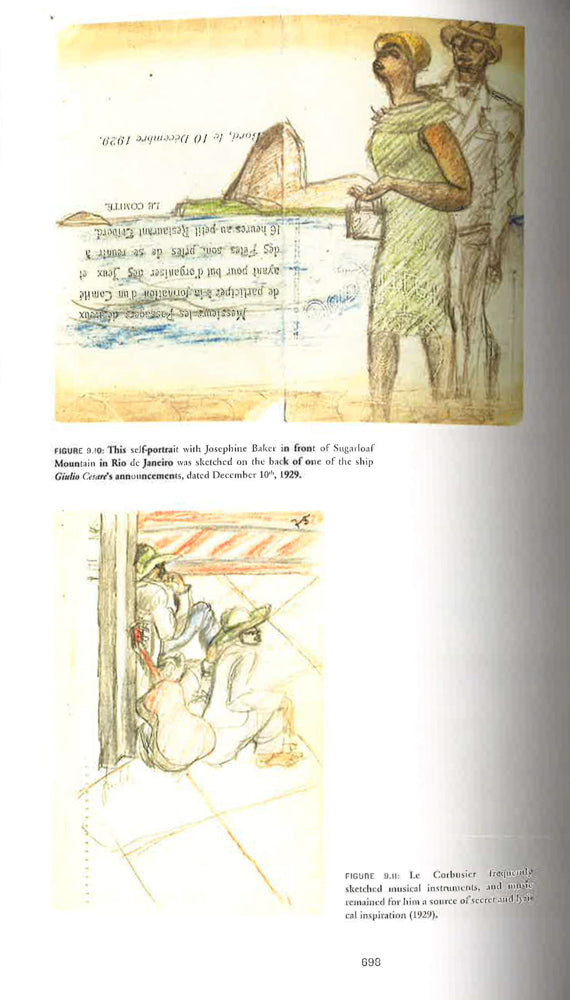 Bord, le 10 Décembre 1929.
LE COMITE.
16 heures au petit Restaurant Tribord.
des Fêtes sont priés de se réunir à
ayant pour but d'organiser des Jeux et
de participer à la formation d'un Comité
Messieurs les Passagers désireux
FIGURE 9.10: This self-portrait with Josephine Baker in front of Sugarloaf
Mountain in Rio de Janeiro was sketched on the back of one of the ship
Giulio Cesare's announcements, dated December 10th, 1929.
75
FIGURE 9.11: Le Corbusier frequently
sketched musical instruments, and music
remained for him a source of secret and lyri-
cal inspiration (1929).
698